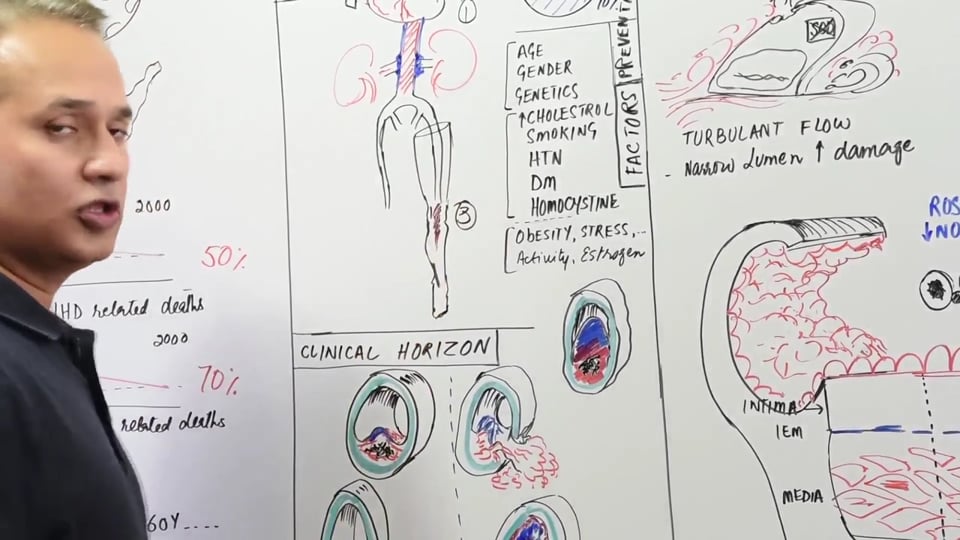 2000
50%
IHD related deaths
2000
70%
related deaths
60Y....
1
3
10%
AGE
GENDER
GENETICS
↑CHOLESTROL
SMOKING
HTN
DM
HOMOCYSTINE
OBESITY, STRESS,...
Activity, Estrogen
FACTORS
CLINICAL HORIZON
TURBULANT FLOW
- Narrow Lumen ↑ damage
ROS
↓NO
INTIMA
IEM
MEDIA